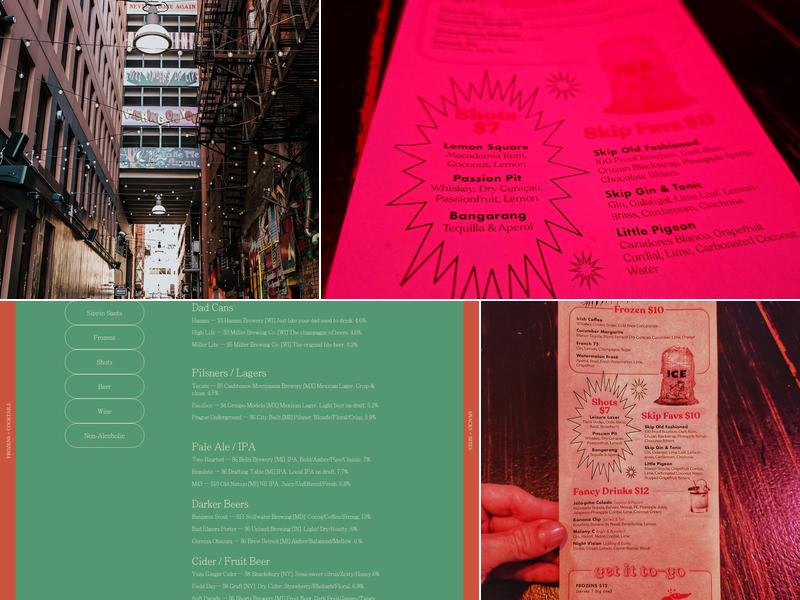 NEVER COME AGAIN
Take Me
Away
French 75
ICE
Shots
$7
Lemon Square
Macadamia Rum,
Coconut, Lemon
Passion Pit
Whiskey, Dry Curaçao,
Passionfruit, Lemon
Bangarang
Tequilla & Aperol
Skip Favs $11
Skip Old Fashioned
100 Proof Bourbon, Dark Rum,
Cruzan Blackstrap, Pineapple Syrup,
Chocolate Bitters
Skip Gin & Tonic
Gin, Galangal, Lime Leaf, Lemon-
grass, Cardamom, Cinchona
Little Pigeon
Cazadores Blanco, Grapefruit
Cordial, Lime, Carbonated Coconut
Water
Sippin Santa
Frozens
Shots
Beer
Wine
Non-Alcoholic
FROZENS + COCKTAILS
SNACKS + BITES
Dad Cans
Hamms — $3 Hamms Brewery [WI] Just like your dad used to drink. 4.6%
High Life — $3 Miller Brewing Co. [WI] The champagne of beers. 4.6%
Miller Lite — $5 Miller Brewing Co. [WI] The original lite beer. 4.2%
Pilsners / Lagers
Tecate — $5 Cuahtemoc Moctezuma Brewery [MX] Mexican Lager. Crisp &
clean. 4.5%
Pacifico — $4 Groupo Modelo [MX] Mexican Lager. Light beer on draft. 5.2%
Prague Underground — $6 City Built [MI] Pilsner. Bloody/Floral/Crisp. 5.9%
Pale Ale / IPA
Two Hearted — $6 Bells Brewery [MI] IPA. Bold/Amber/Pine/Classic. 7%
Resolute — $6 Drafting Table [MI] IPA. Local IPA on draft. 7.7%
M43 — $10 Old Nation [MI] NE IPA. Juicy/Unfiltered/Fresh. 6.8%
Darker Beers
Business Stout — $11 Stillwater Brewing [MD] Cocoa/Coffee/Strong. 13%
Bad Elmers Porter — $6 Upland Brewing [IN]. Light/ Dry/Roasty. 6%
Cerveza Obscura — $6 Brew Detroit [MI] Amber/Balanced/Mellow. 6.%
Cider / Fruit Beer
Yuzu Ginger Cider — $8 Shacksbury [NY] Semi-sweet citrus/Zesty/Honey 6%
Field Day— $8 Graft [NY] Dry Cider. Strawberry/Rhubarb/Floral. 6.9%
Soft Parade — $6 Shorts Brewery [MI] Fruit Beer. Dark Fruit/Jammy/Tangy
Frozen $10
Irish Coffee
Whiskey, Cream, Sugar, Cold Brew Concentrate
Cucumber Margarita
French 75
Gin, Lemon, Champagne, Sugar
Watermelon Frosé
Grapefruit
ICE
Shots
$7
Leisure Lazer
Passion Pit
Whiskey, Dry Curacao,
Passionfruit, Lemon
Bangarang
Tequila & Aperol
Skip Favs $10
Skip Old Fashioned
100 Proof Bourbon, Dark Rum,
Cruzan Blackstrap, Pineapple Syrup,
Chocolate Bitters
Skip Gin & Tonic
Gin, Galangal, Lime Leaf, Lemon-
grass, Cardamom, Cinchona
Little Pigeon
Fancy Drinks $12
Jalapiña Colada
Banana Clip
Melony C
Night Vision
get it to-go
FROZENS $12
(serves 1 big one)